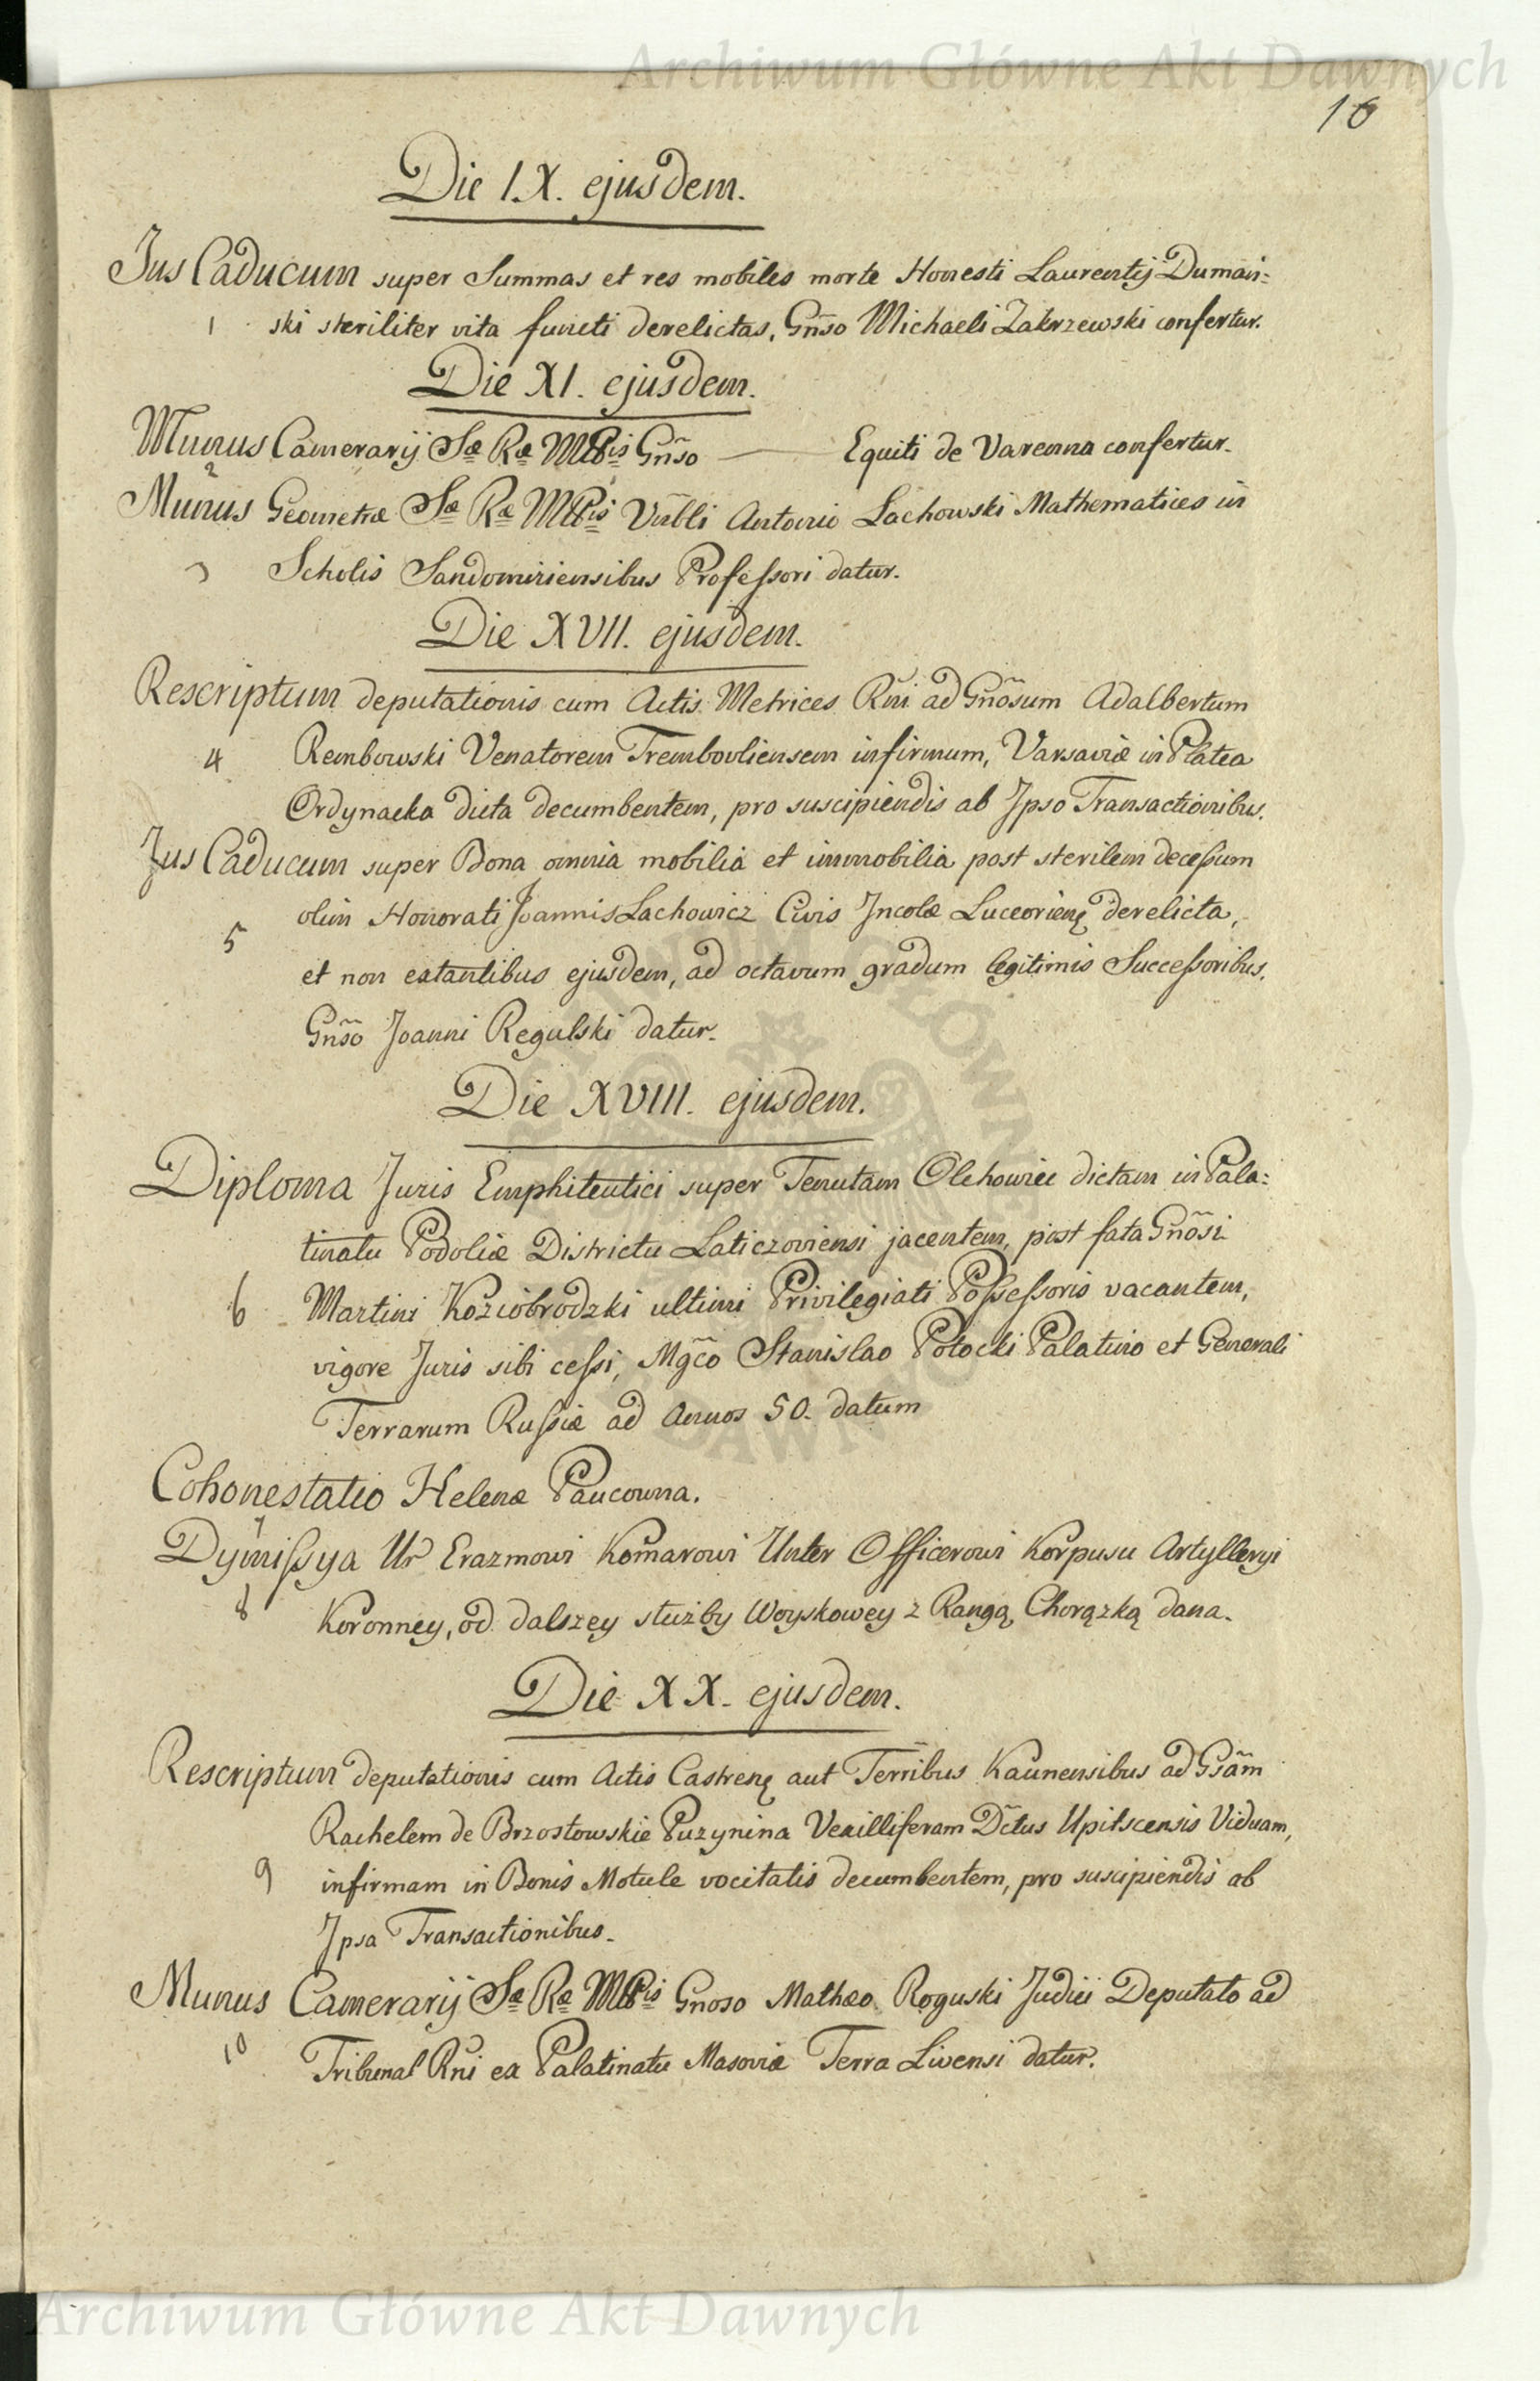 Archiwum Główne Akt Dawnych
16
Die IX. ejusdem.
Jus Caducum super Summas et res mobiles morte Honesti Laurentij Dumań=
1 ski steriliter vita functi derelictas, Gñso Michaeli Zakrzewski confertur.
Die XI. ejusdem.
Munus Camerarij Sæ Ræ Mttis Gñso — Equiti de Varenna confertur.
2
Munus Geometræ Sæ Ræ Mttis Vñbli Antonio Lachowski Mathematices in
3 Scholis Sandomiriensibus Professori datur.
Die XVII. ejusdem.
Rescriptum deputationis cum Actis Metrices Rñi ad Gñosum Adalbertum
4 Rembowski Venatorem Trembovliensem infirmum, Varsaviæ in Platea
Ordynacka dicta decumbentem, pro suscipiendis ab Ipso Transactionibus.
Jus Caducum super Bona omnia mobilia et immobilia post sterilem decessum
olim Honorati Joannis Lachowicz Civis Incolæ Luceorienę derelicta,
5
et non extantibus ejusdem, ad octavum gradum legitimis Successoribus,
Gñso Joanni Regulski datur.
Die XVIII. ejusdem.
Diploma Juris Emphiteutici super Tenutam Olchowiec dictam in Pala=
tinatu Podoliæ Districtu Laticzoviensi jacentem, post fata Gñosi
6 Martini Koziobrodzki ultimi Privilegiati Possessoris vacantem,
vigore Juris sibi cessi, Mgco Stanislao Potocki Palatino et Generali
Terrarum Russiæ ad Annos 50. datum
Cohonestatio Helenæ Paucowna.
7
Dymissya Ur Erazmowi Komarowi Unter Officerowi Korpusu Artylleryi
8 Koronney, od dalszey służby Woyskowey z Rangą Chorązką dana.
Die XX. ejusdem.
Rescriptum deputationis cum Actis Castrenę aut Terribus Kaunensibus ad Gsam
Rachelem de Brzostowskie Puzynina Vexilliferam Dctus Upitscensis Viduam,
9 infirmam in Bonis Motule vocitatis decumbentem, pro suscipiendis ab
Ipsa Transactionibus.
Munus Camerarij Sæ Ræ Mttis Gnoso Mathæo Roguski Judici Deputato ad
10 Tribunal Rni ex Palatinatu Masoviæ Terra Livensi datur.
Archiwum Główne Akt Dawnych